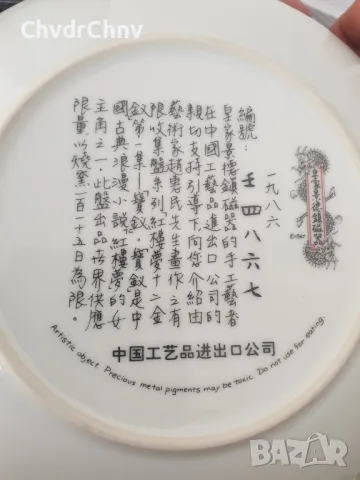 ChvdrChnv
一九八六
編號：壬四八六七
皇家景德鎮磁器的手工藝者
在中國工藝品進出口公司的
親切支持引導下向您介紹由
藝術家趙惠民先生畫作之有
限收集盤系列紅樓夢十二金
釵第一集—寶釵。寶釵是中
國古典浪漫小說紅樓夢的女
主角之一。此盤出品在世界供應
限量以燒窯一百一十五日為限。
皇家景德鎮磁器
中国工艺品进出口公司
Artistic object. Precious metal pigments may be toxic. Do not use for eating.
BAZAR
.bg